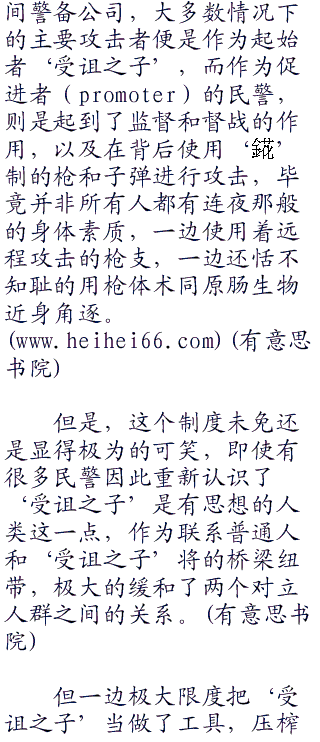 间警备公司，大多数情况下
的主要攻击者便是作为起始
者‘受诅之子’，而作为促
进者（promoter）的民警，
则是起到了监督和督战的作
用，以及在背后使用‘錵’
制的枪和子弹进行攻击，毕
竟并非所有人都有连夜那般
的身体素质，一边使用着远
程攻击的枪支，一边还恬不
知耻的用枪体术同原肠生物
近身角逐。
(www.heihei66.com)(有意思
书院)
但是，这个制度未免还
是显得极为的可笑，即使有
很多民警因此重新认识了
‘受诅之子’是有思想的人
类这一点，作为联系普通人
和‘受诅之子’将的桥梁纽
带，极大的缓和了两个对立
人群之间的关系。(有意思书
院)
但一边极大限度把‘受
诅之子’当做了工具，压榨